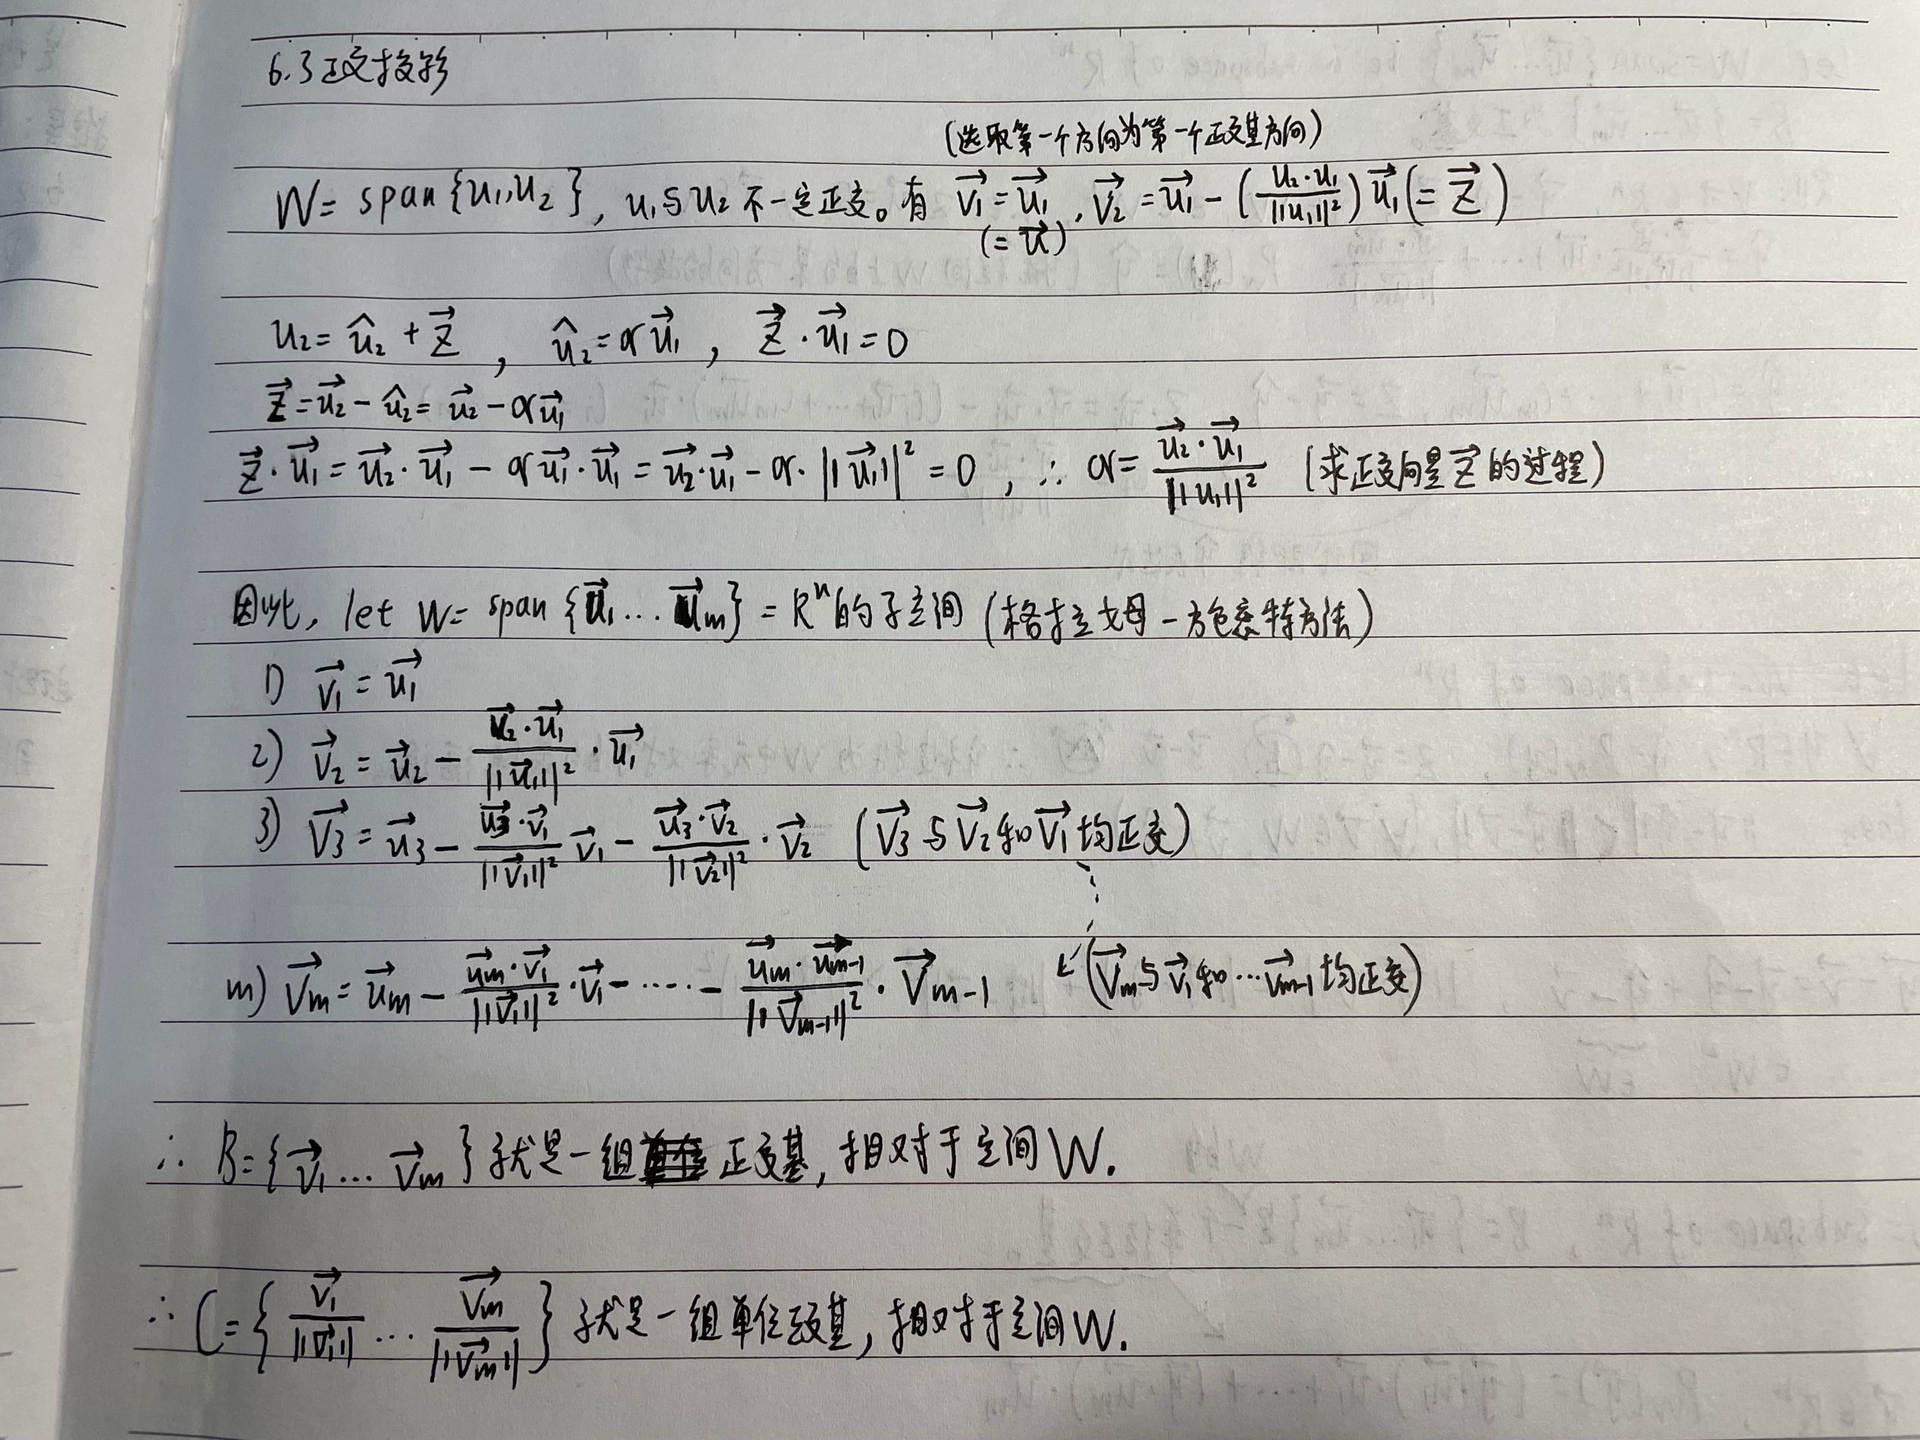 6.3 正交投影
(选取第一个方向为第一个正交基方向)
W = span {u₁,u₂}, u₁与u₂不一定正交。有 v⃗₁ = u⃗₁, v⃗₂ = u⃗₁ - (u₂·u₁/||u₁||²) u⃗₁ (= z⃗)
(= u⃗)
u₂ = û₂ + z⃗, û₂ = αu⃗₁, z⃗·u⃗₁ = 0
z⃗ = u⃗₂ - û₂ = u⃗₂ - αu⃗₁
z⃗·u⃗₁ = u⃗₂·u⃗₁ - αu⃗₁·u⃗₁ = u⃗₂·u⃗₁ - α·||u⃗₁||² = 0, ∴ α = u⃗₂·u⃗₁/||u₁||² (求正交向量z⃗的过程)
因此, let W = span {u⃗₁...u⃗m} = Rⁿ的子空间 (格拉姆-施密特方法)
1) v⃗₁ = u⃗₁
2) v⃗₂ = u⃗₂ - u⃗₂·u⃗₁/||u⃗₁||² · u⃗₁
3) v⃗₃ = u⃗₃ - u⃗₃·v⃗₁/||v⃗₁||² v⃗₁ - u⃗₃·v⃗₂/||v⃗₂||² · v⃗₂ (v⃗₃与v⃗₂和v⃗₁均正交)
m) v⃗m = u⃗m - u⃗m·v⃗₁/||v⃗₁||² · v⃗₁ - ····· - u⃗m·u⃗m-1/||v⃗m-1||² · v⃗m-1 ↙ (v⃗m与v⃗₁和...v⃗m-1均正交)
∴ B = {v⃗₁...v⃗m} 就是一组正交基, 相对于空间W.
∴ C = {v⃗₁/||v⃗₁|| ... v⃗m/||v⃗m||} 就是一组单位正交基, 相对于空间W.